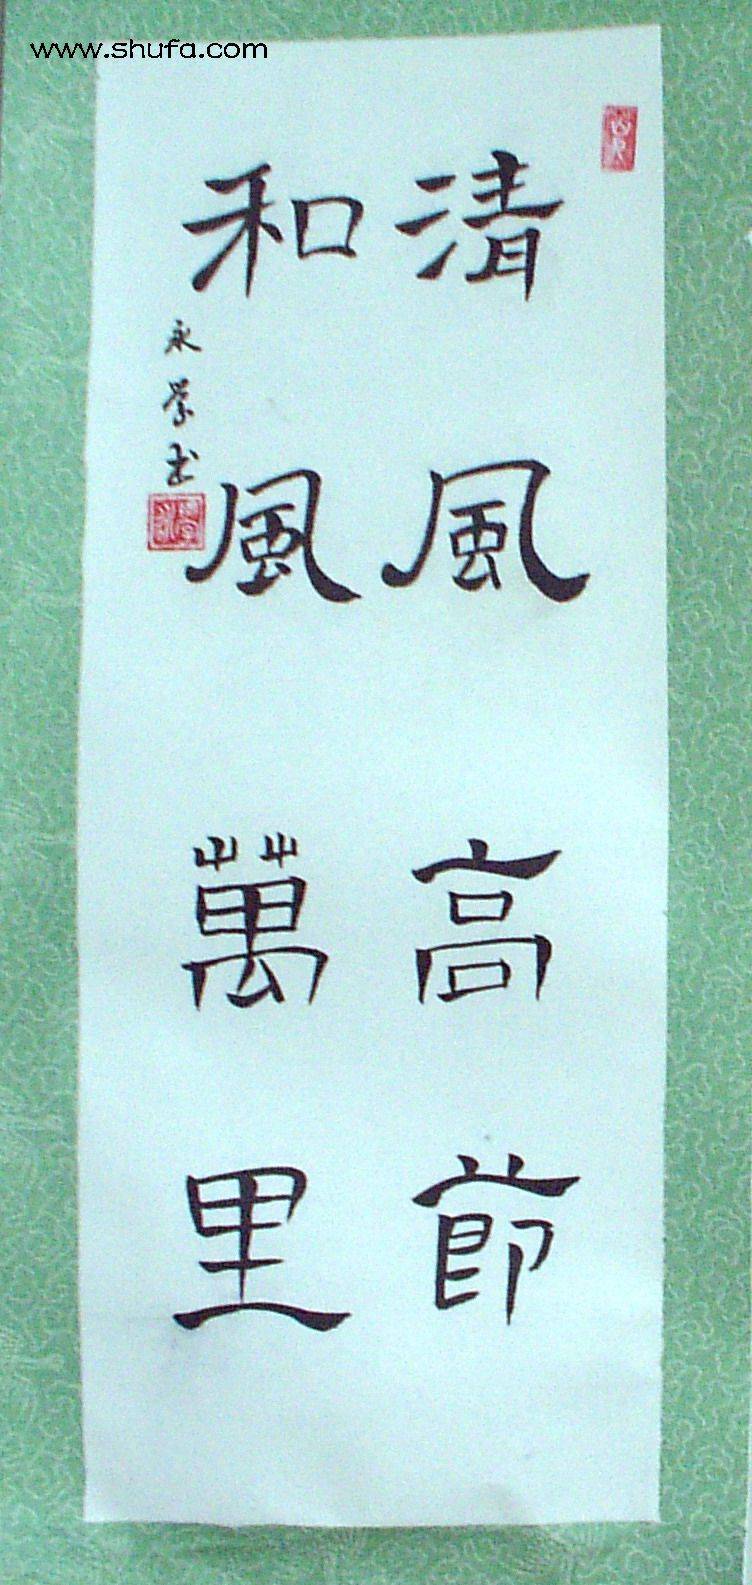 www.shufa.com
清風高節
和風萬里
永學书